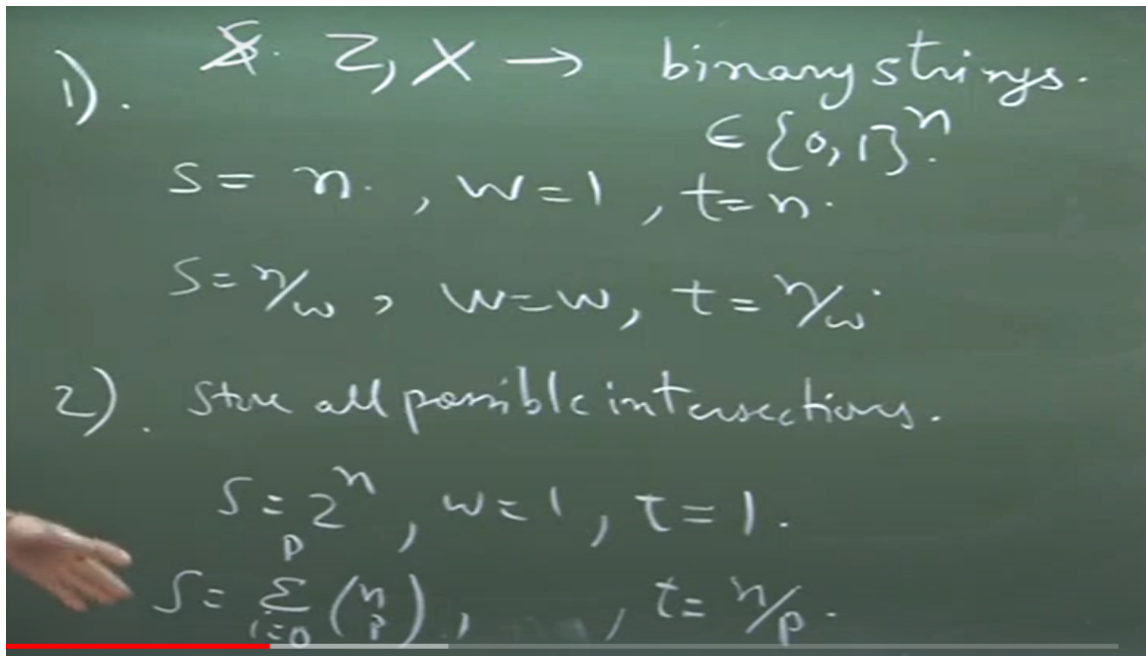 1). Z, X → binary strings.
∈ {0,1}ⁿ.
S = n. , w=1 , t=n.
S = n/w , w=w, t = n/w.
2). Store all possible intersections.
S = 2ⁿ, w=1, t=1.
S = Σᵢ₌₀ᵖ (n p), , t = n/p.